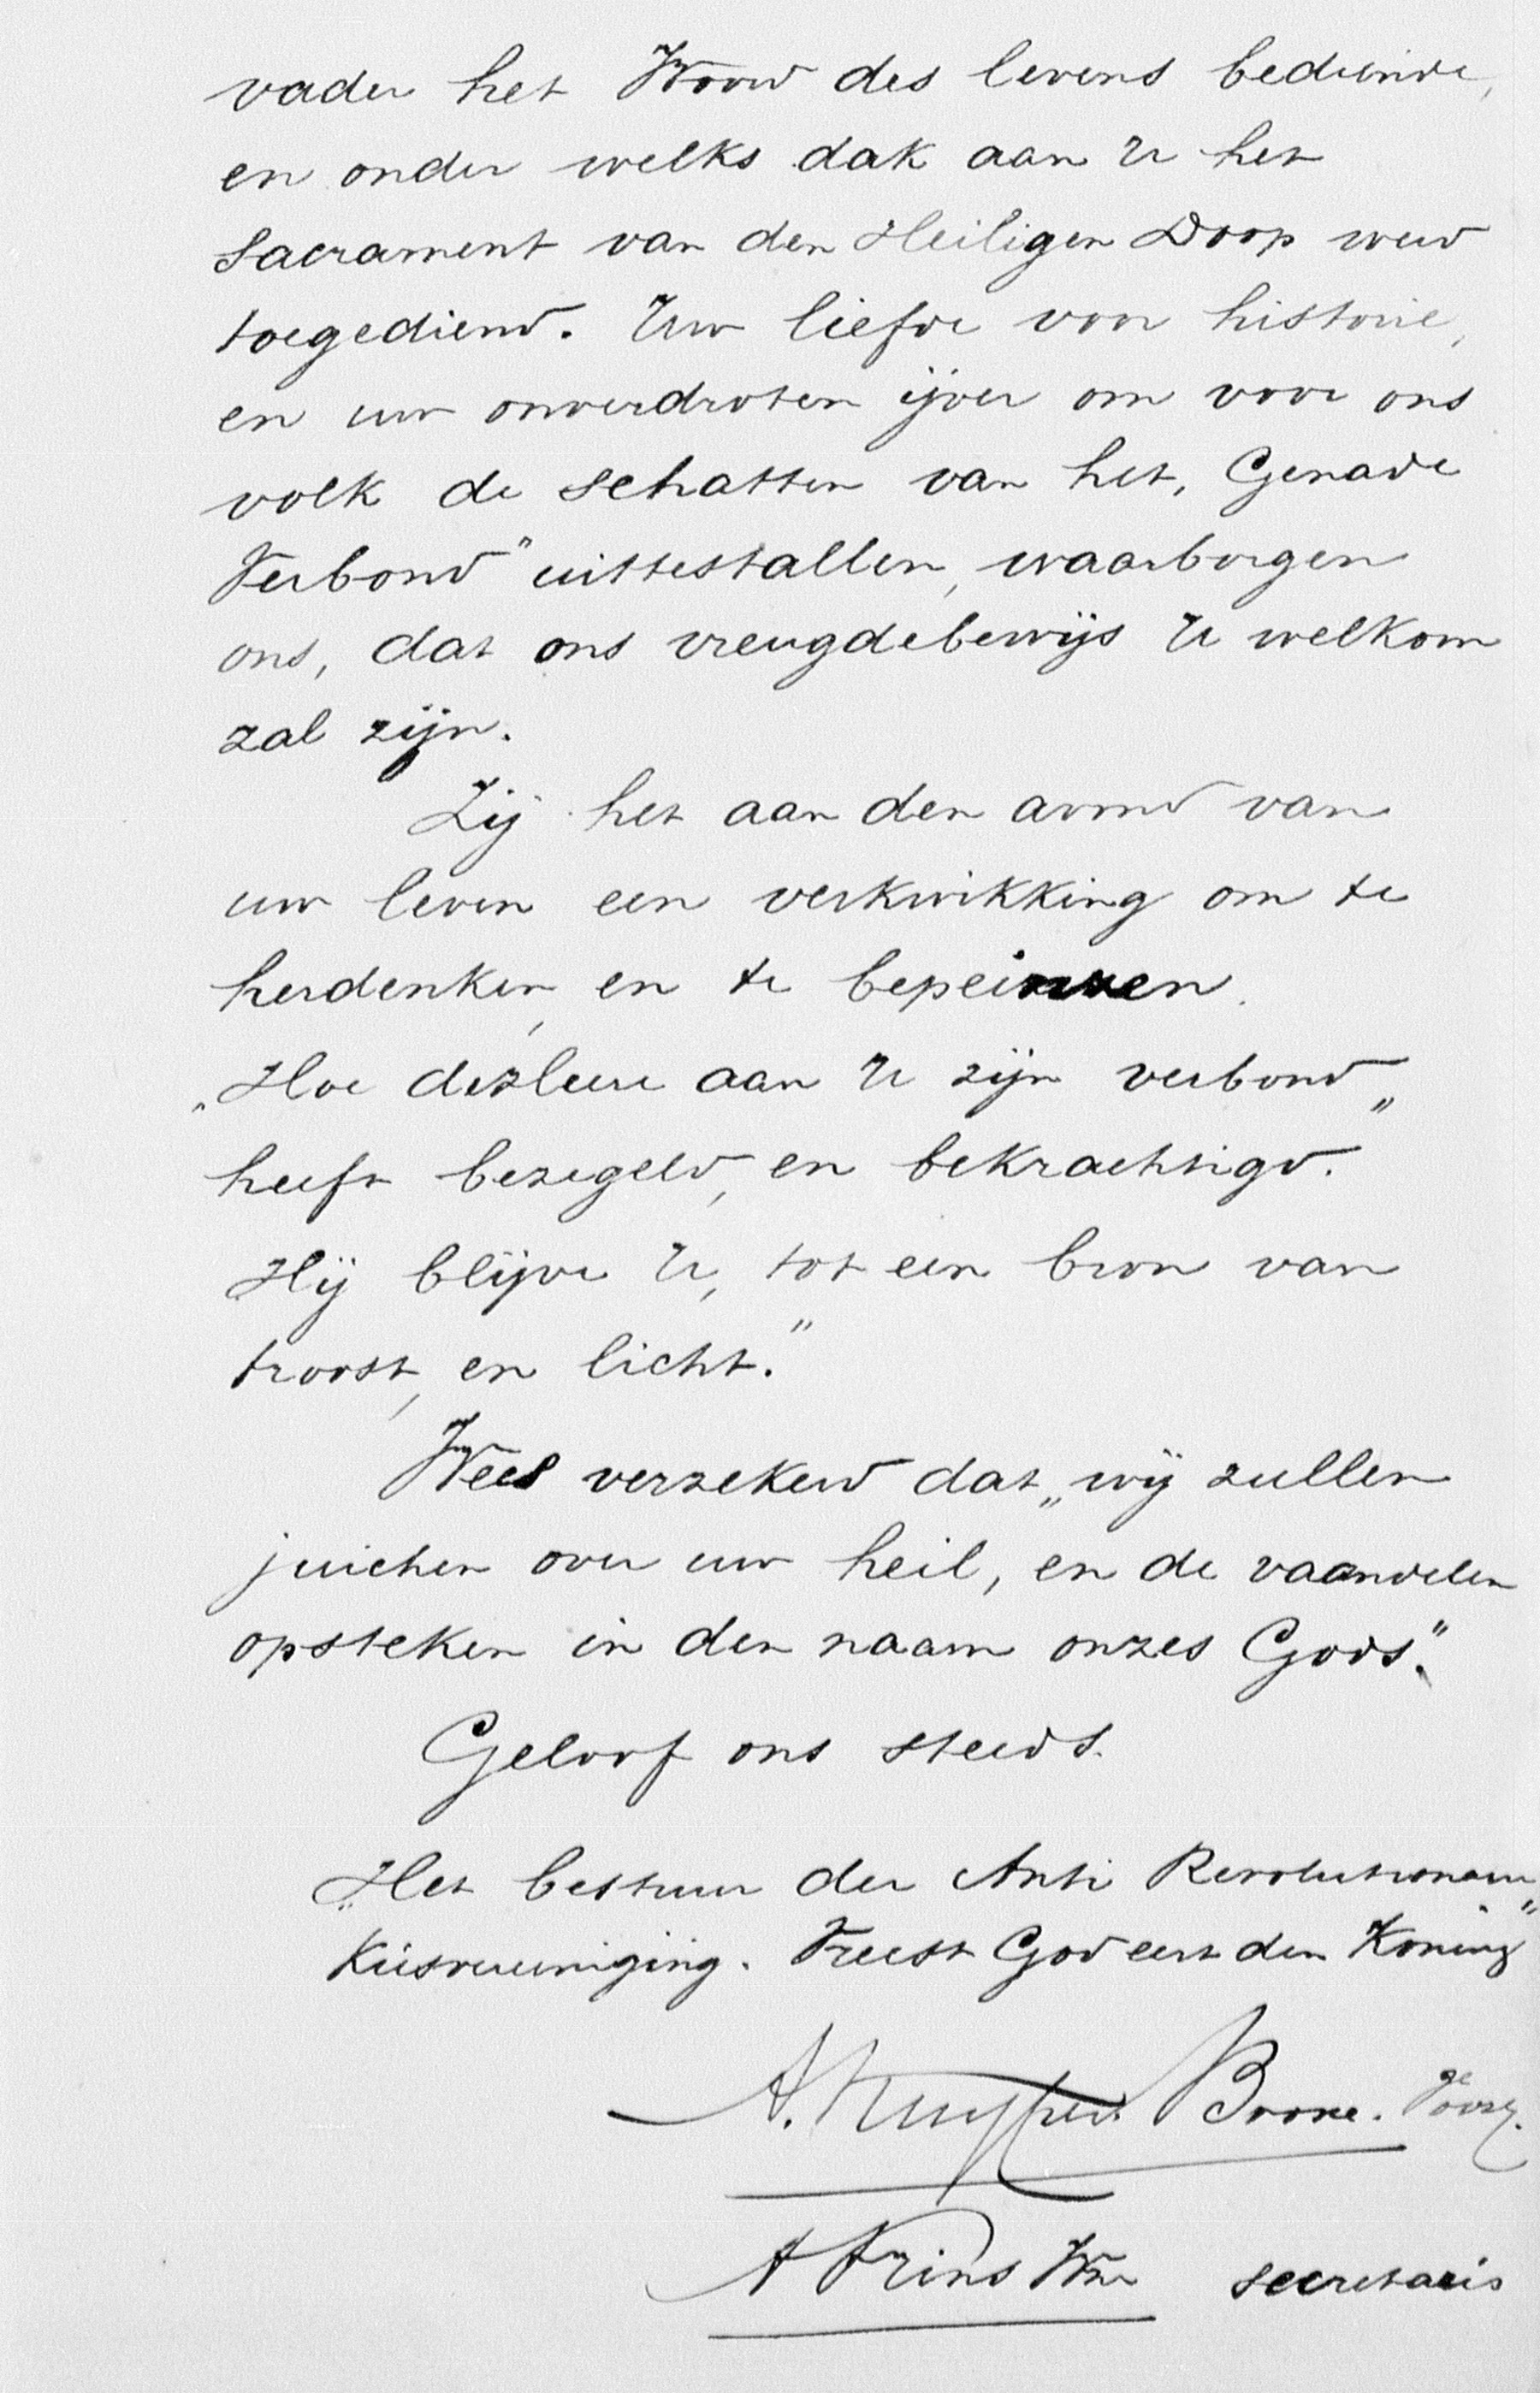 vader het Woord des levens bediende,
en onder welks dak aan U het
Sacrament van den Heiligen Doop werd
toegediend. Uw liefde voor historie,
en uw onverdroten ijver om voor ons
volk de schatten van het, Genade
Verbond" uittestallen, waarborgen
ons, dat ons vreugdebewijs U welkom
zal zijn.
Zij het aan den avond van
uw leven een verkwikking om te
herdenken, en te bepeinzen.
„Hoe de Heere aan U zijn verbond„
heeft bezegeld, en bekrachtigd."
Hij blijve U, tot een bron van
troost, en licht."
Wees verzekerd dat „wij zullen
juichen over uw heil, en de vaandelen
opsteken in den naam onzes Gods".
Geloof ons steeds.
Het bestuur der Anti Revolutionaire
Kiesvereeniging. „Vreest God eert den Koning"
A. Kuyper Boone.
A Prins Wzn secretaris